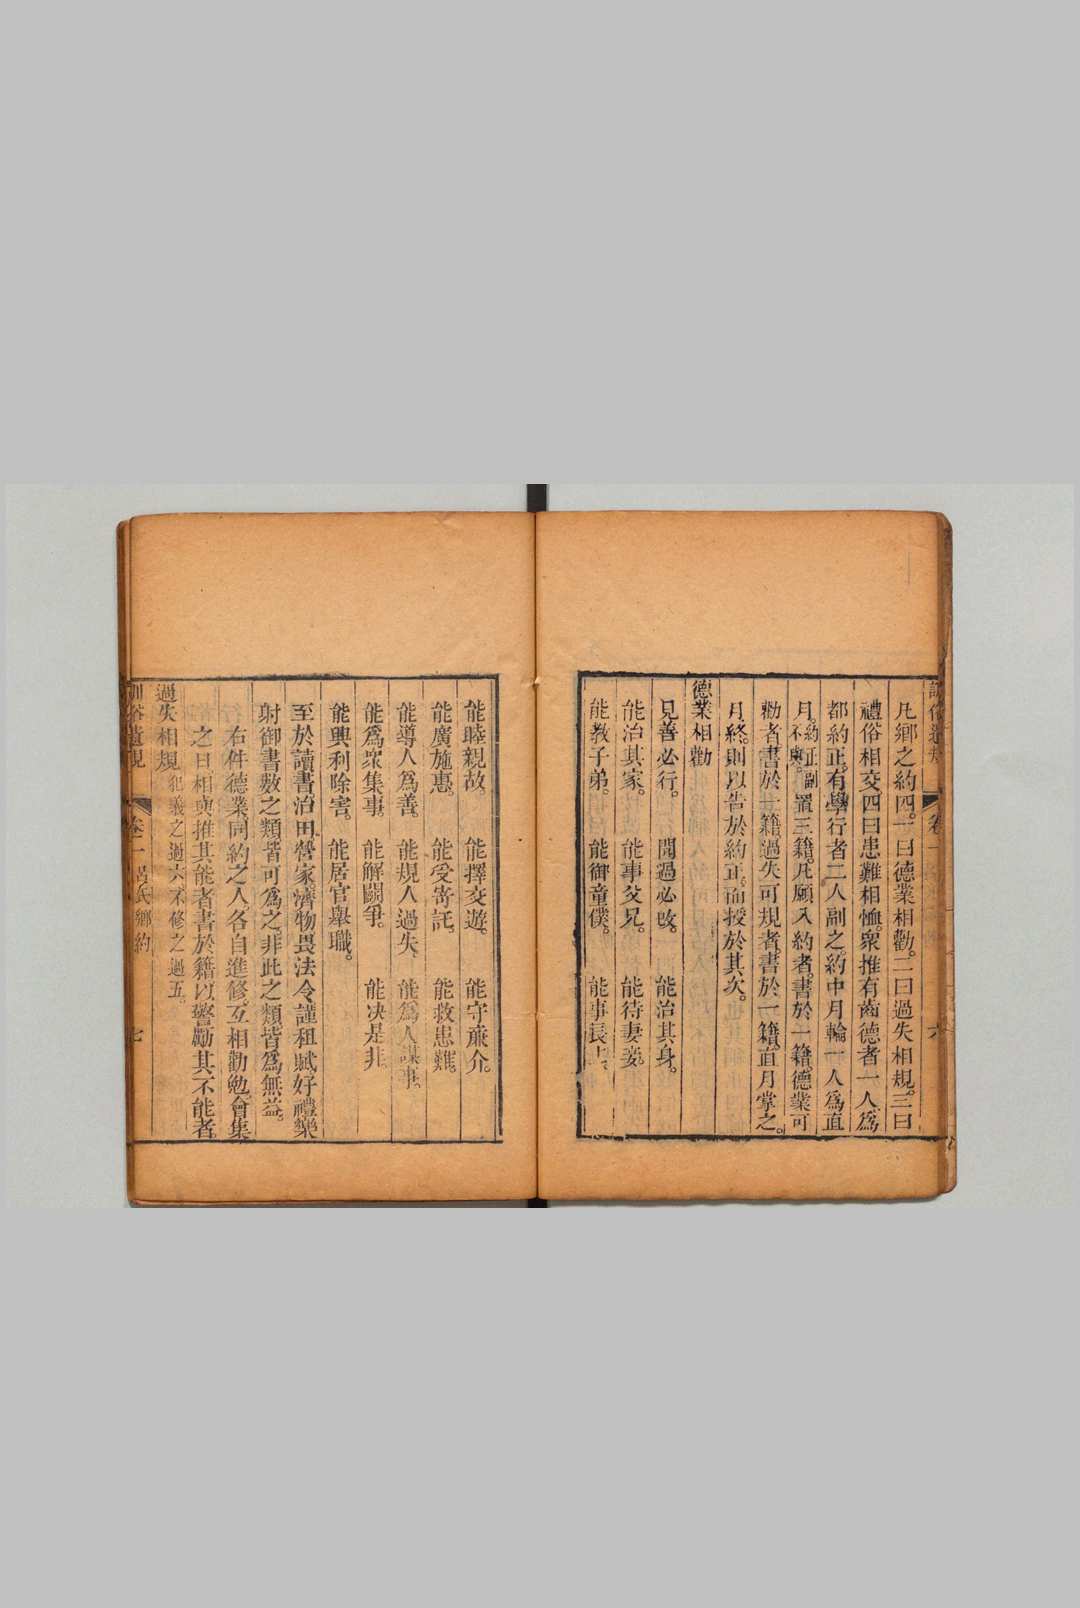 訓俗遺規
卷一
六
凡鄉之約四。一曰德業相勸。二曰過失相規。三曰
禮俗相交四曰患難相恤。衆推有齒德者一人爲
都約正。有學行者二人副之。約中月輪一人爲直
月。約正副不與。置三籍。凡願入約者。書於一籍。德業可
勸者書於一籍。過失可規者。書於一籍。直月掌之。
月終。則以告於約正。而授於其次。
德業相勸
見善必行。 聞過必改。 能治其身。
能治其家。 能事父兄。 能待妻妾。
能教子弟。 能御童僕。 能事長上。
能睦親故。 能擇交遊。 能守廉介。
能廣施惠。 能受寄託。 能救患難。
能導人爲善。 能規人過失。 能爲人謀事。
能爲衆集事。 能解鬬爭。 能决是非。
能興利除害。 能居官舉職。
至於讀書治田營家濟物畏法令謹租賦好禮樂
射御書數之類。皆可爲之。非此之類。皆爲無益。
右件德業同約之人。各自進修。互相勸勉。會集
之日相與推其能者。書於籍以警勵其不能者。
過失相規 犯義之過六不修之過五。
訓俗遺規
卷一
呂氏鄉約
七